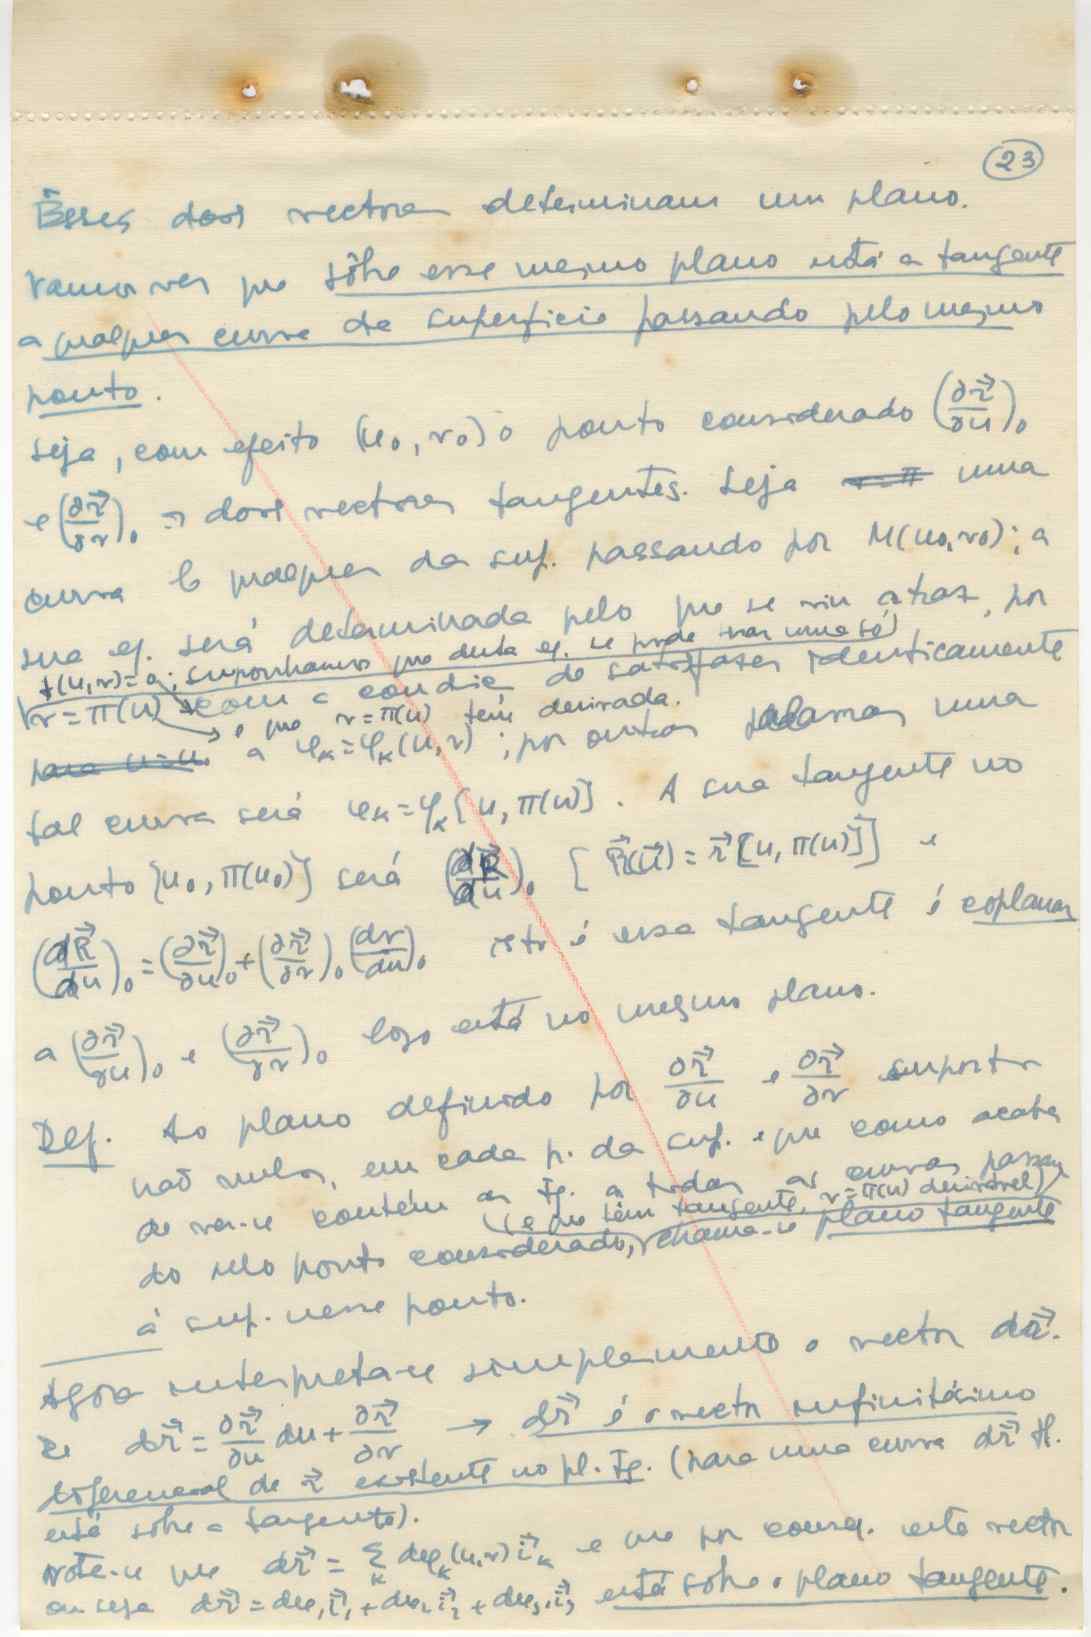 23
Êsses dois vectores determinam um plano.
Vamos ver que sôbre esse mesmo plano está a tangente
a qualquer curva da superficie passando pelo mesmo
ponto.
Seja, com efeito (u₀, v₀) o ponto considerado (∂r⃗/∂u)₀
e (∂r⃗/∂v)₀ os dois vectores tangentes. Seja uma
curva C qualquer da sup. passando por M(u₀,v₀); a
sua eq. será determinada pelo que se viu atraz, por
f(u,v)=0; suponhamos que desta eq. se pode tirar uma só
v=π(u) com a condiç. de satisfazer identicamente
e que v=π(u) tem derivada.
para u=u₀ a φₖ=φₖ(u,v); por outras palavras uma
tal curva será φₖ=φₖ[u,π(u)]. A sua tangente no
ponto [u₀,π(u₀)] será (dR⃗/du)₀ [R⃗(u)=r⃗[u,π(u)]] e
(dR⃗/du)₀=(∂r⃗/∂u)₀+(∂r⃗/∂v)₀(dv/du)₀ isto é essa tangente é coplanar
a (∂r⃗/∂u)₀ e (∂r⃗/∂v)₀ logo está no mesmo plano.
Def. Ao plano definido por ∂r⃗/∂u e ∂r⃗/∂v supostos
não nulos, em cada p. da sup. e que como acaba
de ver-se contém as tg. a todas as curvas passan
(e que têm tangente, v=π(u) derivável)
do pelo ponto considerado, chama-se plano tangente
á sup. nesse ponto.
Agora interpreta-se simplesmente o vector dr⃗.
Se dr⃗=∂r⃗/∂u du+∂r⃗/∂v → dr⃗ é o vector infinitésimo
diferencial de r⃗ existente no pl. tg. (para uma curva dr⃗
está sôbre a tangente).
Note-se que dr⃗=∑ₖ dφₖ(u,v)i⃗ₖ e que por conseq. este vector
ou seja dr⃗=dφ₁i⃗₁+dφ₂i⃗₂+dφ₃i⃗₃ está sôbre o plano tangente.